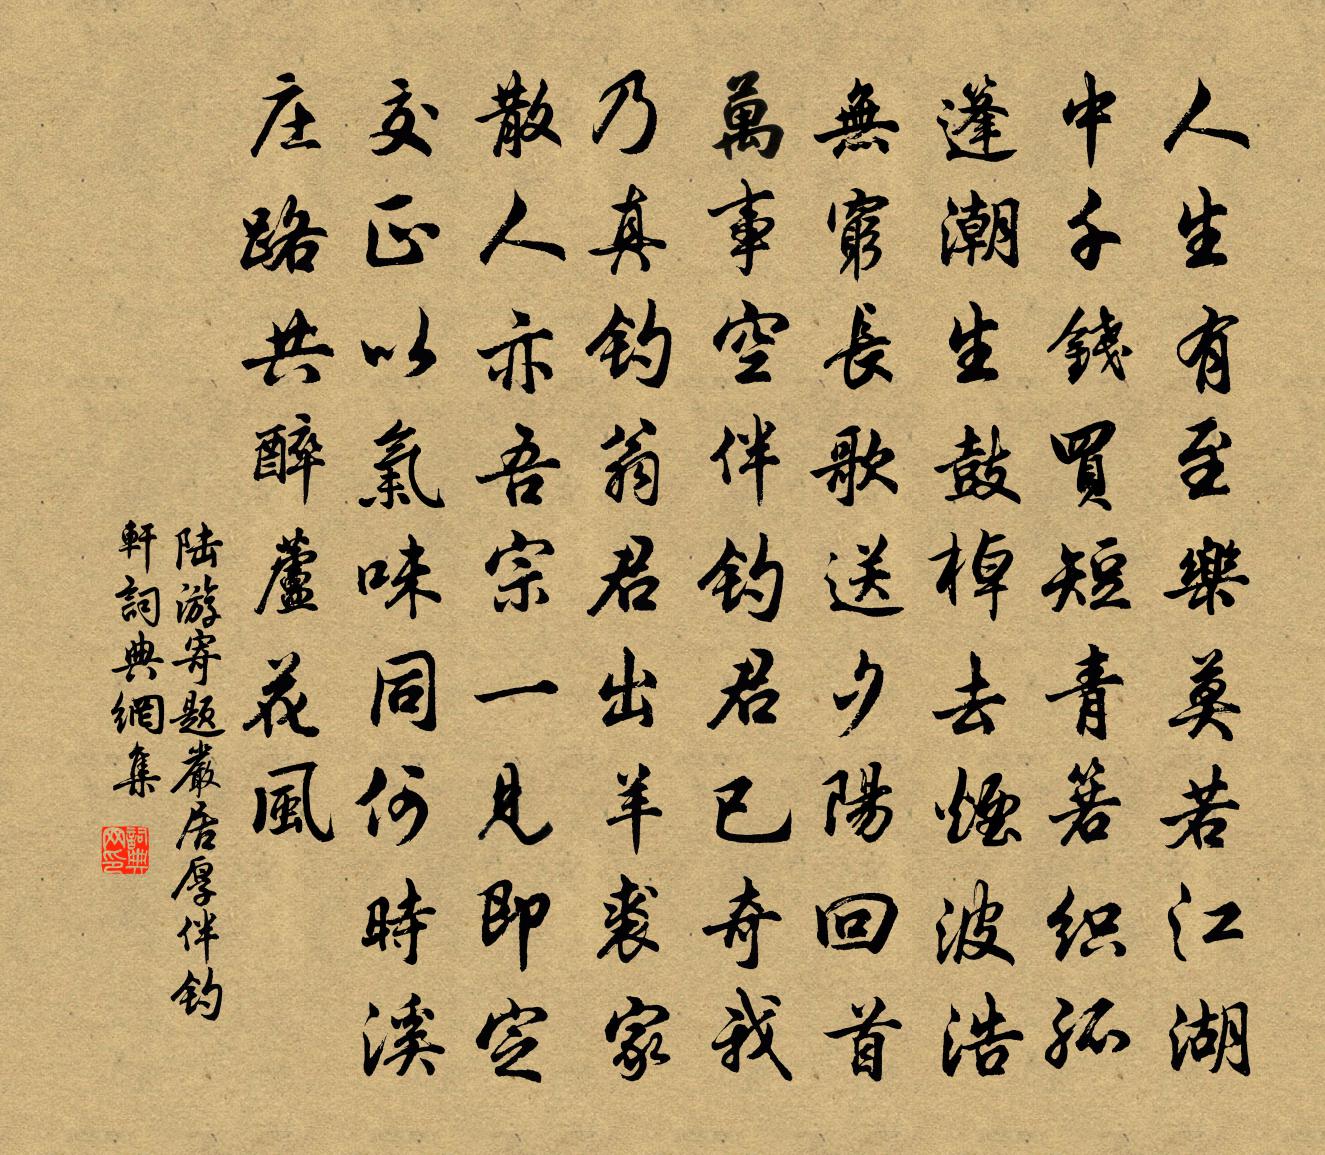 人生有至樂莫若江湖
中千錢買短青箬織孤
蓬潮生鼓棹去煙波浩
無窮長歌送夕陽回首
萬事空伴釣君已奇我
乃真釣翁君出羊裘家
散人亦吾宗一見即定
交正以氣味同何時溪
庄路共醉蘆花風
陆游寄题嚴居厚伴釣
軒詞典網集
詞典网印